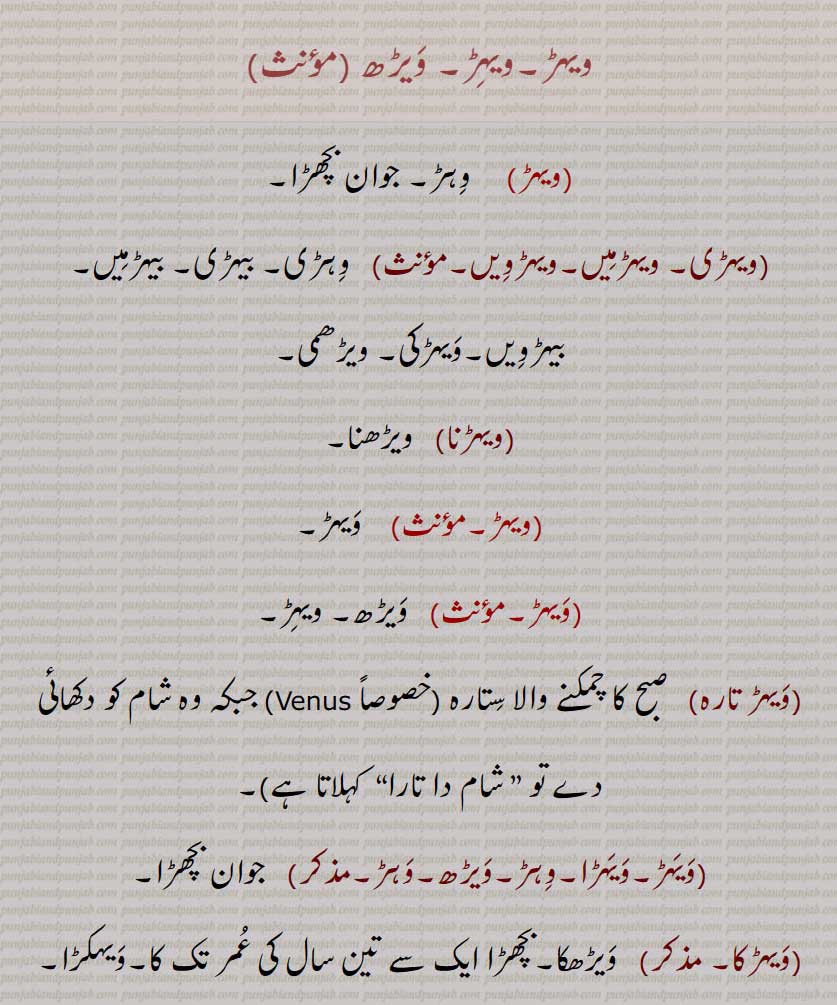 ویہڑ۔ویہِڑ۔ وَیڑھ (مؤنث)
(ویہڑ) وِہڑ۔ جوان بچھڑا۔
(ویہڑی۔ ویہڑمِیں۔ویہڑوِیں۔مؤنث) وِہڑی۔ بیہڑی۔ بیہڑمِیں۔
بیہڑوِیں۔وَیہڑکی۔ ویڑھمی۔
(ویہڑنا) ویڑھنا۔
(ویہڑ۔مؤنث) وَیہڑ۔
(وَیہڑ۔مؤنث) وَیڑھ۔ ویہِڑ۔
(وَیہڑ تارہ) صبح کا چمکنے والا سِتارہ (خصوصاً Venus) جبکہ وہ شام کو دکھائی
دے تو ”شام دا تارا“ کہلاتا ہے)۔
(وَیَہڑ۔وَیَہڑا۔وِہڑ۔وَیڑھ۔وَہڑ۔مذکر) جوان بچھڑا۔
(وَیہڑکا۔ مذکر) وَیڑھکا۔بچھڑا ایک سے تین سال کی عُمر تک کا۔وَیہکڑا۔